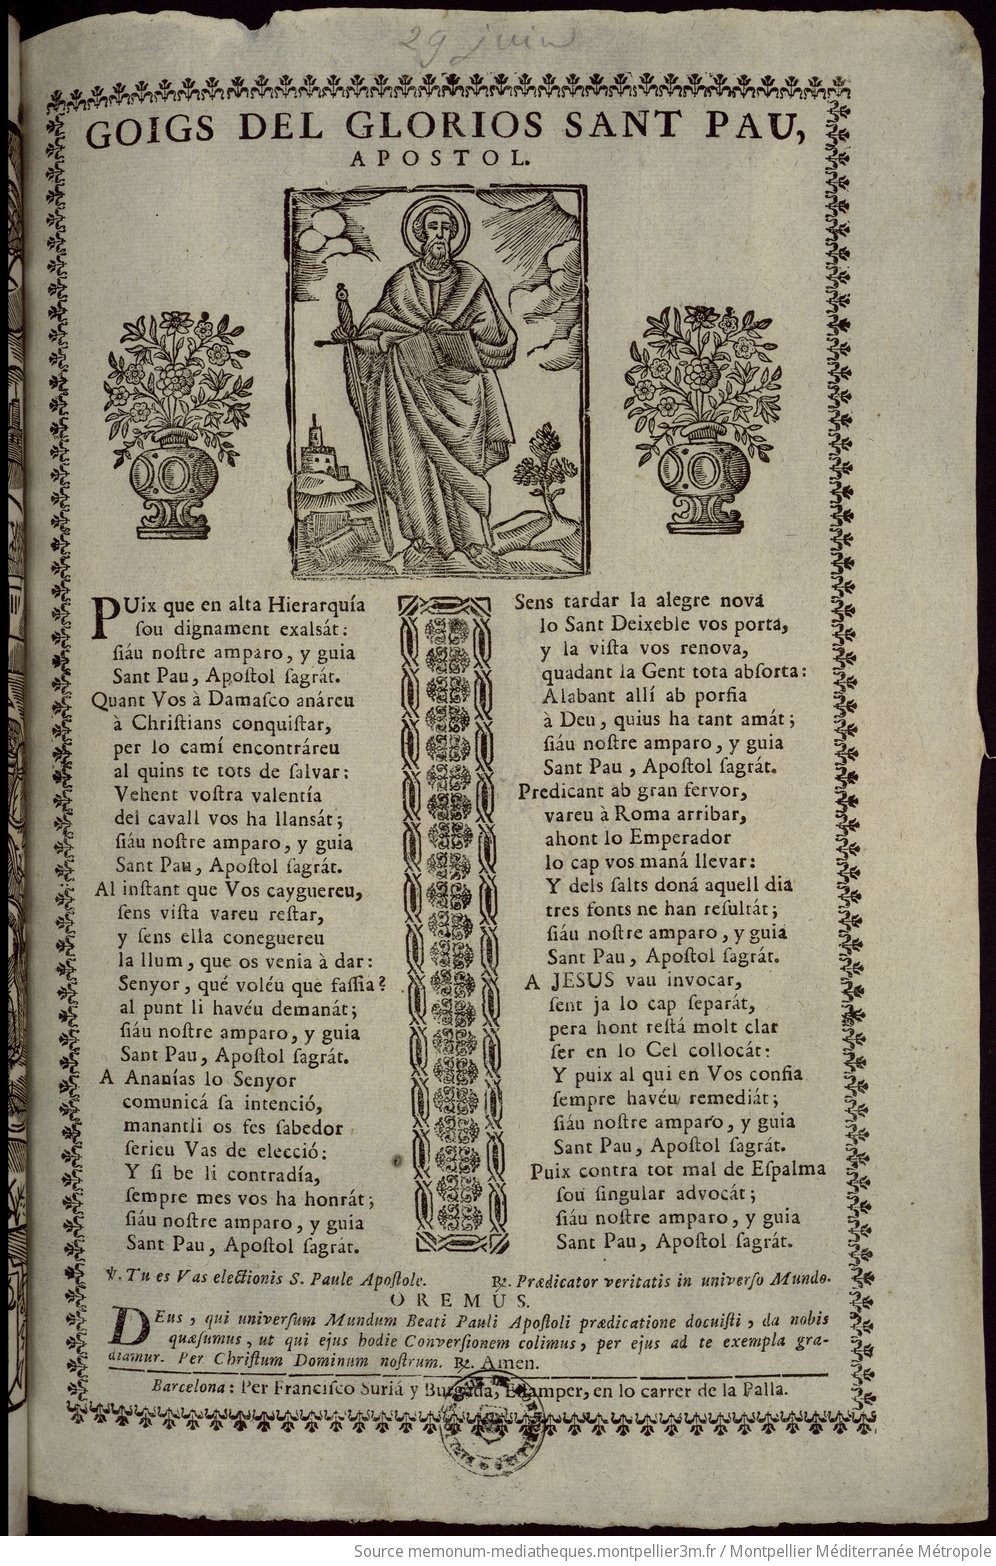 29 juin
GOIGS DEL GLORIOS SANT PAU,
APOSTOL.
PUix que en alta Hierarquía
ſou dignament exalsát:
ſiáu noſtre amparo, y guia
Sant Pau, Apoſtol ſagrát.
Quant Vos à Damaſco anáreu
à Chriſtians conquiſtar,
per lo camí encontráreu
al quins te tots de ſalvar:
Vehent voſtra valentía
del cavall vos ha llansát;
ſiáu noſtre amparo, y guia
Sant Pau, Apoſtol ſagrát.
Al inſtant que Vos cayguereu,
ſens viſta vareu reſtar,
y ſens ella coneguereu
la llum, que os venia à dar:
Senyor, qué voléu que faſſia?
al punt li havéu demanát;
ſiáu noſtre amparo, y guia
Sant Pau, Apoſtol ſagrát.
A Ananías lo Senyor
comunicá ſa intenció,
manantli os fes ſabedor
ſerieu Vas de elecció:
Y ſi be li contradía,
ſempre mes vos ha honrát;
ſiáu noſtre amparo, y guia
Sant Pau, Apoſtol ſagrát.
Sens tardar la alegre nová
lo Sant Deixeble vos portá,
y la viſta vos renova,
quadant la Gent tota abſorta:
Alabant allí ab porfia
à Deu, quius ha tant amát;
ſiáu noſtre amparo, y guia
Sant Pau, Apoſtol ſagrát.
Predicant ab gran fervor,
vareu à Roma arribar,
ahont lo Emperador
lo cap vos maná llevar:
Y dels ſalts doná aquell dia
tres fonts ne han reſultát;
ſiáu noſtre amparo, y guia
Sant Pau, Apoſtol ſagrát.
A JESUS vau invocar,
ſent ja lo cap ſeparát,
pera hont reſtá molt clar
ſer en lo Cel collocát:
Y puix al qui en Vos confia
ſempre havéu remediát;
ſiáu noſtre amparo, y guia
Sant Pau, Apoſtol ſagrát.
Puix contra tot mal de Eſpalma
ſou ſingular advocát;
ſiáu noſtre amparo, y guia
Sant Pau, Apoſtol ſagrát.
℣. Tu es Vas electionis S. Paule Apoſtole. ℟. Prædicator veritatis in univerſo Mundo.
OREMUS.
DEus, qui univerſum Mundum Beati Pauli Apoſtoli prædicatione docuiſti, da nobis
quæſumus, ut qui ejus hodie Converſionem colimus, per ejus ad te exempla gra-
diamur. Per Chriſtum Dominum noſtrum. ℟. Amen.
Barcelona: Per Franciſco Suriá y Burgada, Eſtamper, en lo carrer de la Palla.
Source memonum-mediatheques.montpellier3m.fr / Montpellier Méditerranée Métropole